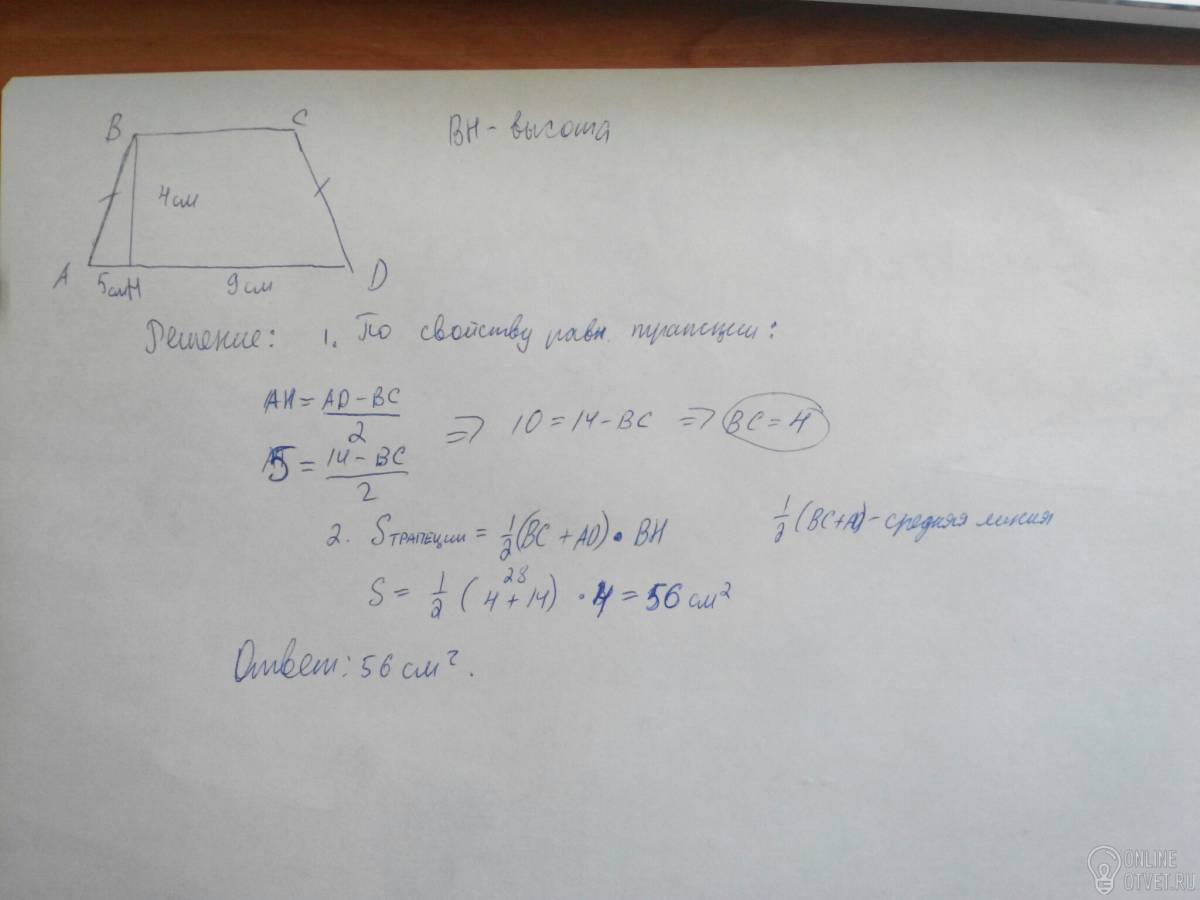 B C
BH - высота
4 см
A 5 см H 9 см D
Решение: 1. По свойству равн. трапеции:
AH = AD - BC
2
5 = 14 - BC
2
=> 10 = 14 - BC => BC = 4
2. Sтрапеции = 1/2 (BC + AD) • BH
1/2 (BC + AD) - средняя линия
28
S = 1/2 (4 + 14) • 4 = 56 см²
Ответ: 56 см².
ONLINE
OTVET.RU